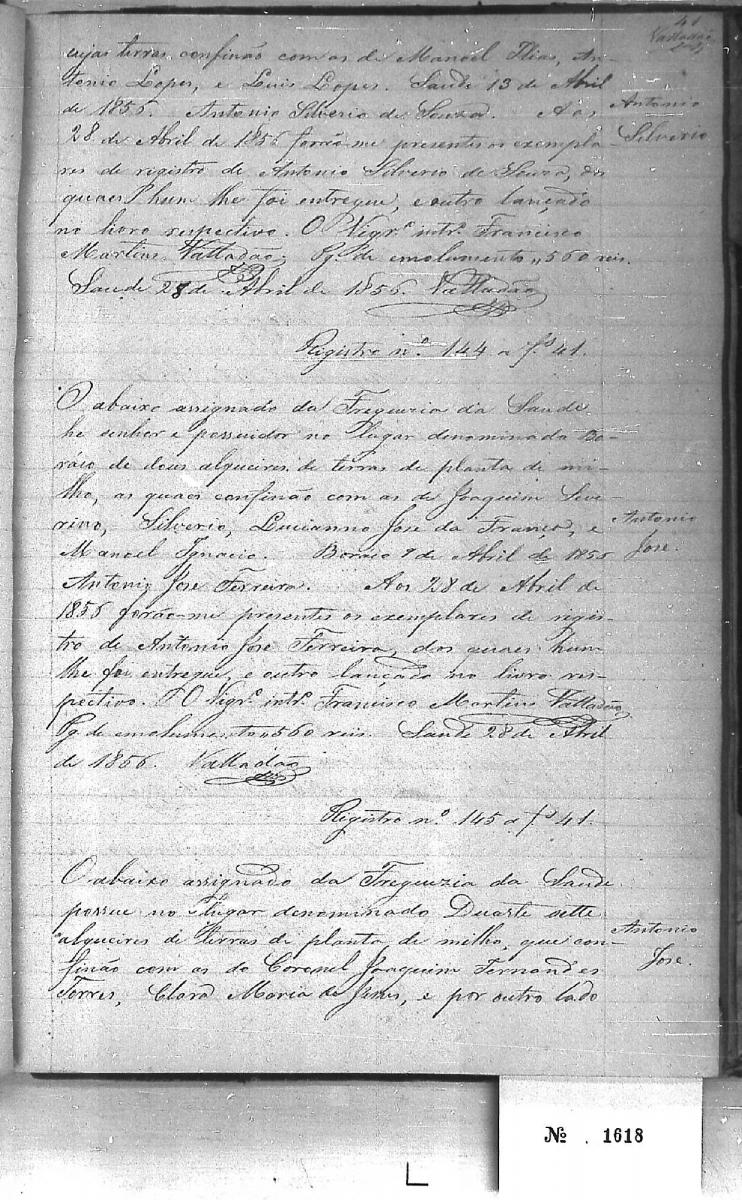 41
Valladão
cujas terras confinão com as de Manoel Elias, An-
tonio Lopes, e Luis Lopes. Saude 13 de Abril
de 1856. Antonio Silverio de Souza. Aos
Antonio
Silverio
28 de Abril de 1856 forão-me presentes os exempla-
res de registro de Antonio Silverio de Souza, dos
quaes hum lhe foi entregue, e outro lançado
no livro respectivo. O Vigr.º intr.º Francisco
Martins Valladão. Pg. de emolumento "560 reis.
Saude 28 de Abril de 1856. Valladão
Registro n.º 144 a f.s 41.
O abaixo assignado da Freguezia da Saude
he senhor e possuidor no lugar denominado Bo-
ráio de dous alqueires de terras de planta de mi-
lho, as quaes confinão com as de Joaquim Seve-
rino, Silverio, Lucianno José da França, e
Antonio
José.
Manoel Ignacio. Boraio 7 de Abril de 1856
Antonio José Ferreira. Aos 28 de Abril de
1856 forão-me presentes os exemplares de regis-
tro de Antonio José Ferreira, dos quaes hum
lhe foi entregue, e outro lançado no livro res-
pectivo. O Vigr.º intr.º Francisco Martins Valladão
Pg. de emolumento "560 reis. Saude 28 de Abril
de 1856. Valladão
Registro n.º 145 a f.s 41.
O abaixo assignado da Freguezia da Saude
possue no lugar denominado Duarte sette
alqueires de terras de planta de milho, que con-
Antonio
José.
finão com as do Coronel Joaquim Fernandes
Torres, Clara Maria de Jesus, e por outro lado
№ . 1618